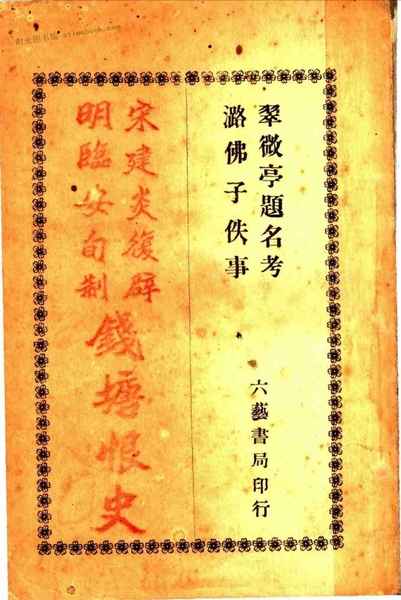 翠微亭題名考
潞佛子佚事
六藝書局印行
宋建炎復辟
明臨安旬制
錢塘恨史